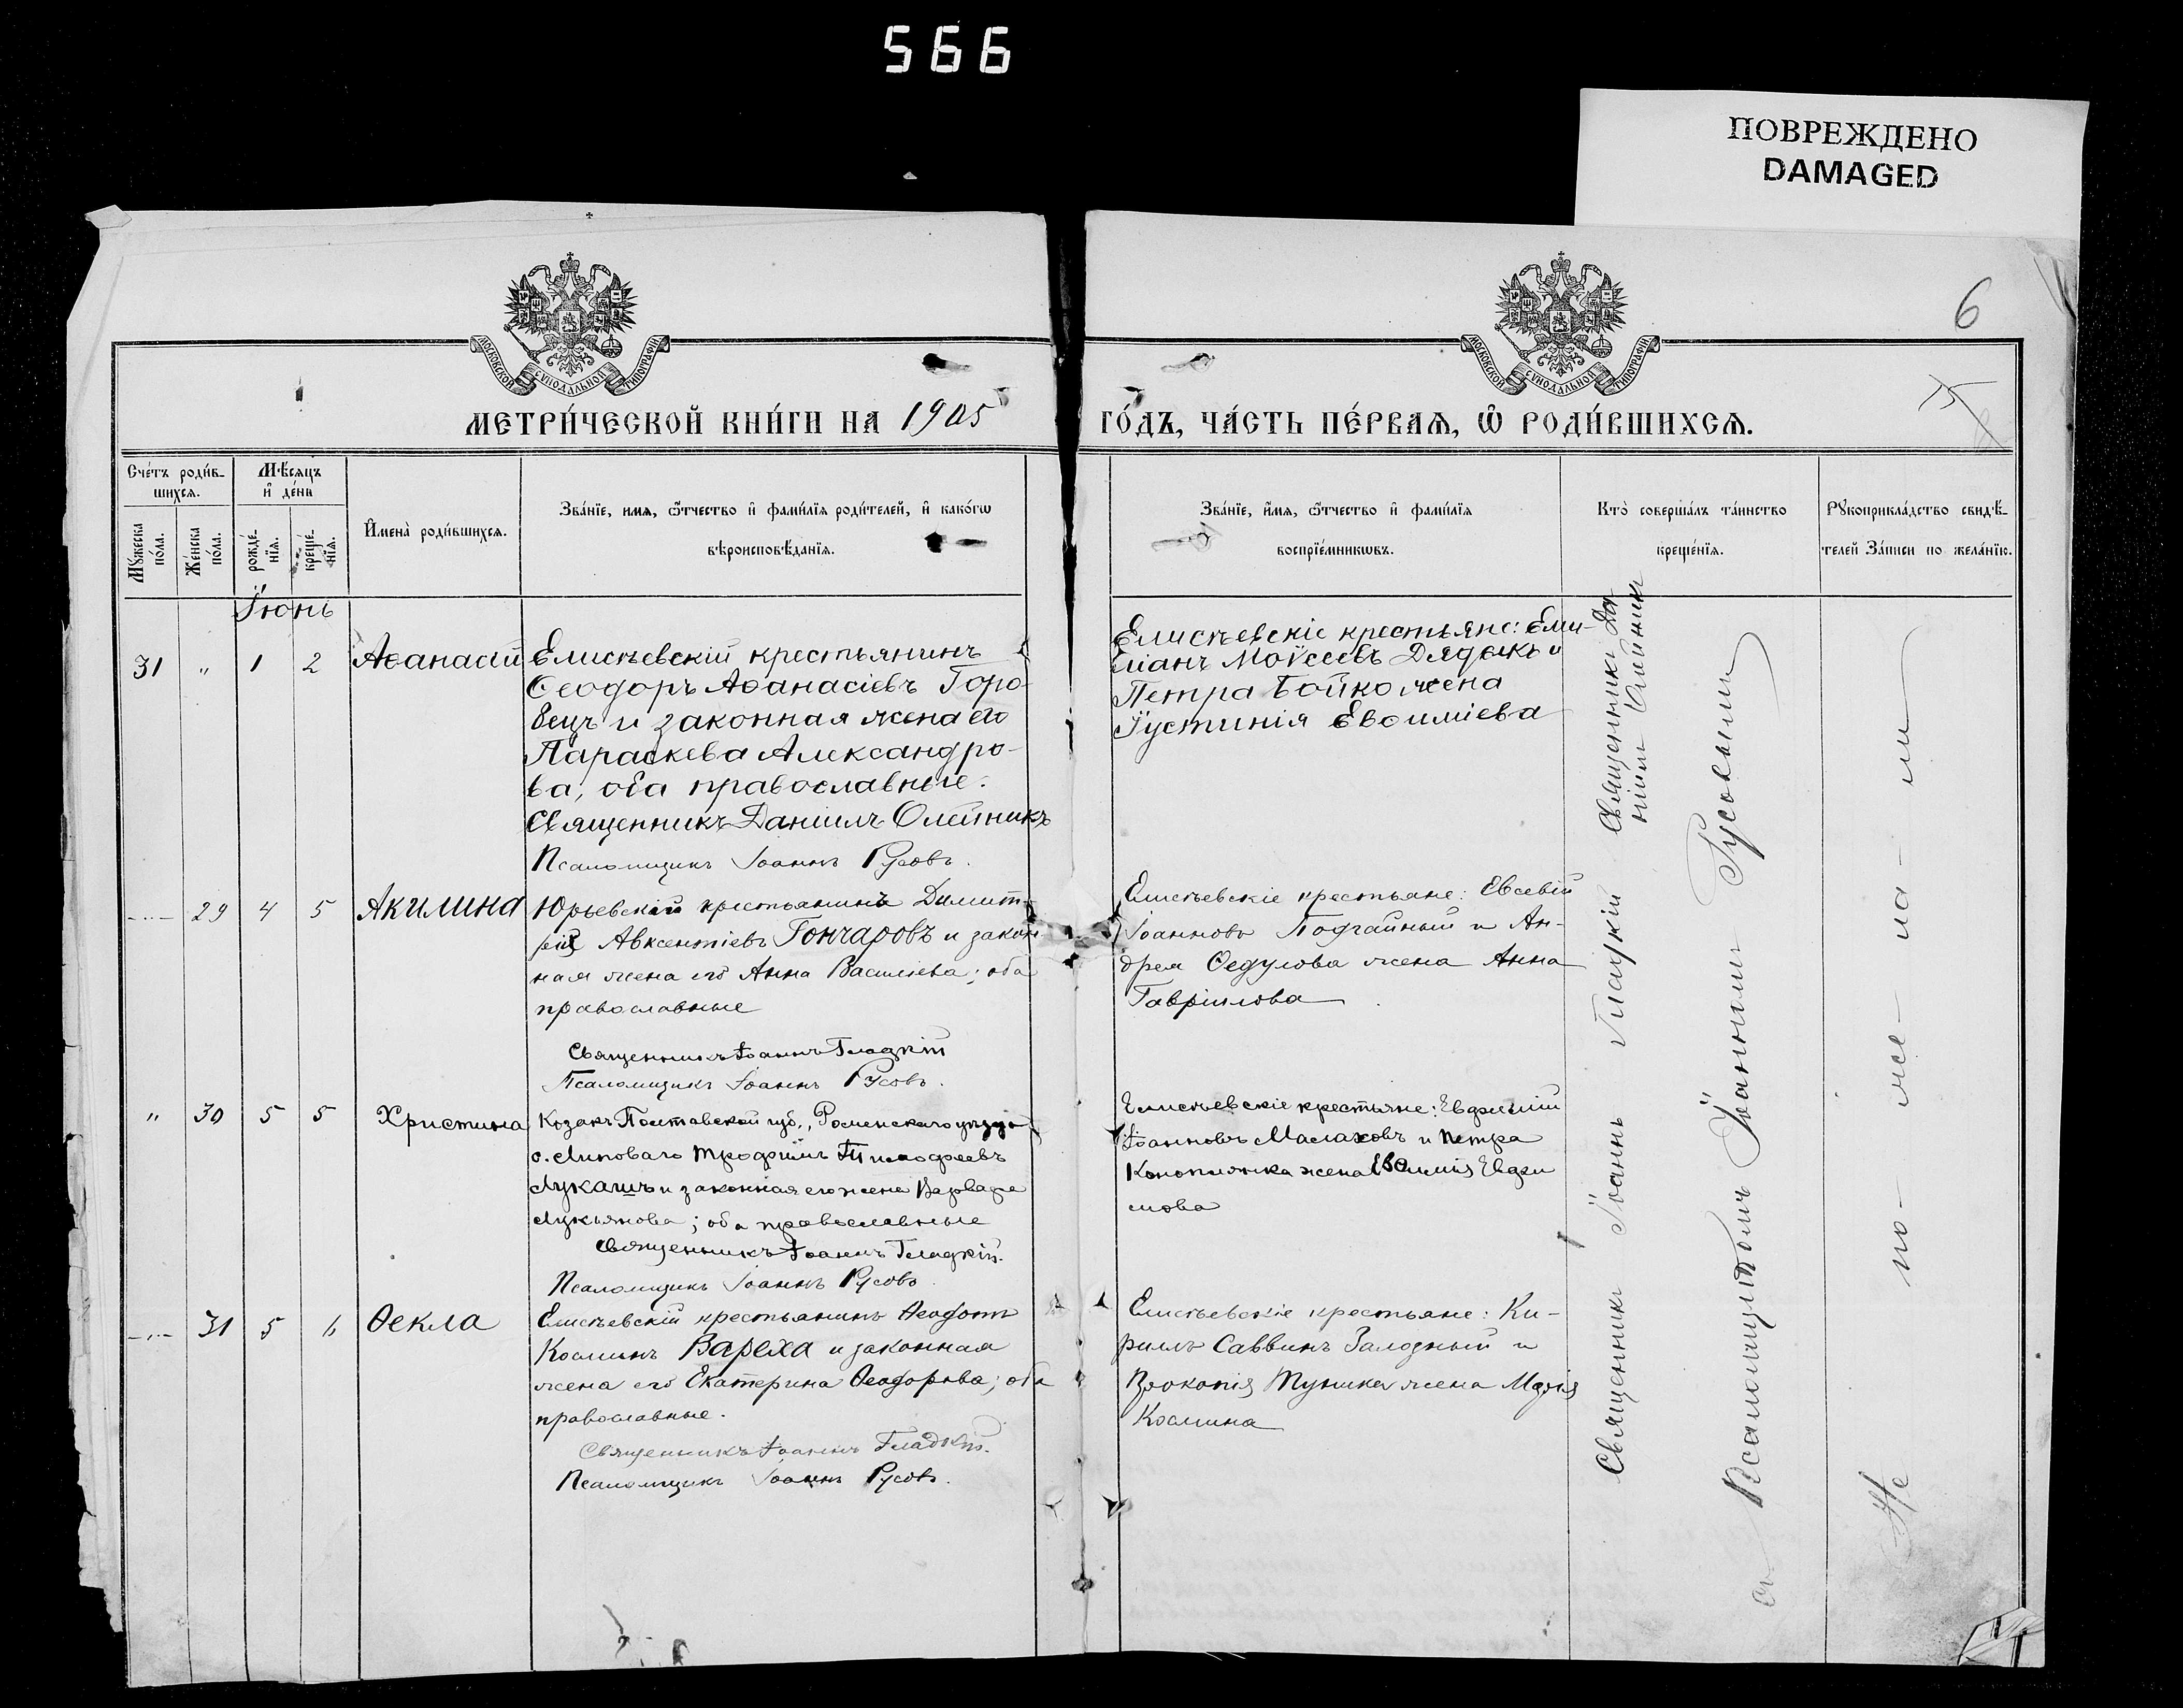 566
ПОВРЕЖДЕНО
DAMAGED
6
15
МОСКОВСКОЙ СѴНОДАЛЬНОЙ ТИПОГРАФІИ
МОСКОВСКОЙ СѴНОДАЛЬНОЙ ТИПОГРАФІИ
МЕТРИ́ЧЕСКОЙ КНИ́ГИ НА 1905
ГО́ДЪ, ЧА́СТЬ ПЕ́РВАѦ, Ѽ РОДИ́ВШИХСѦ.
Сче́тъ роди́в-
шихсѧ.
Мꙋ́жеска по́ла.
Же́нска по́ла.
Мѣ́сяцъ
и҆ де́нь
рожде́-
нїѧ.
креще́-
нїѧ.
И҆мена̀ роди́вшихсѧ.
Зва́нїе, имѧ, ѻ҆́тчество и҆ фами́лїѧ роди́телей, и҆ како́гѡ
вѣроисповѣ́данїѧ.
Зва́нїе, и҆́мѧ, ѻ҆́тчество и҆ фами́лїѧ
воспрїе́мникѡвъ.
Кто̀ соверша́лъ та́инство
креще́нїѧ.
Рꙋкоприкла́дство свидѣ́-
телей За́писи по жела́нїю.
Іюнь
31 " 1 2 Аѳанасій
Елисѣевскій крестьянинъ
Ѳеодоръ Аѳанасіевъ Горо-
бецъ и законная жена его
Параскева Александро-
ва, оба православные.
Священникъ Даніилъ Олейникъ
Псаломщикъ Іоаннъ Русовъ.
Елисѣевскіе крестьяне: Еми-
ліанъ Моѵсеевъ Дядыкъ и
Петра Бойко жена
Іустинія Евѳиміева
-"- 29 4 5 Акилина
Юрьевскій крестьянинъ Димит-
рій Авксентіевъ Гончаровъ и закон-
ная жена его Анна Василіева; оба
православные
Священникъ Іоаннъ Гладкій
Псаломщикъ Іоаннъ Русовъ.
Елисѣевскіе крестьяне: Евсевій
Іоанновъ Подгайный и Ан-
дрея Ѳедулова жена Анна
Гавріилова
" 30 5 5 Христина
Козакъ Полтавской губ., Роменскаго уѣзда
с. Липоваго Трофимъ Тимофеевъ
Лукашъ и законная его жена Варвара
Лукьянова; оба православные
Священникъ Іоаннъ Гладкій.
Псаломщикъ Іоаннъ Русовъ
Елисѣевскіе крестьяне: Евфимій
Іоанновъ Малаховъ и Петра
Конопляжка жена Евфи
мова
-"- 31 5 6 Ѳекла
Елисѣевскій крестьянинъ Ѳеодотъ
Косминъ Вареха и законная
жена его Екатерина Ѳеодорова; оба
православные.
Священникъ Іоаннъ Гладкій.
Псаломщикъ Іоаннъ Русовъ.
Елисѣевскіе крестьяне: Ки-
риллъ Саввинъ Залозный и
Прокопія Тушка жена Марія
Космина
Священникъ Да-
ніилъ Олейникъ
Священникъ Іоаннъ Гладкій
съ Псаломщикомъ Іоанномъ Русовымъ
Не по- же- ла- ли